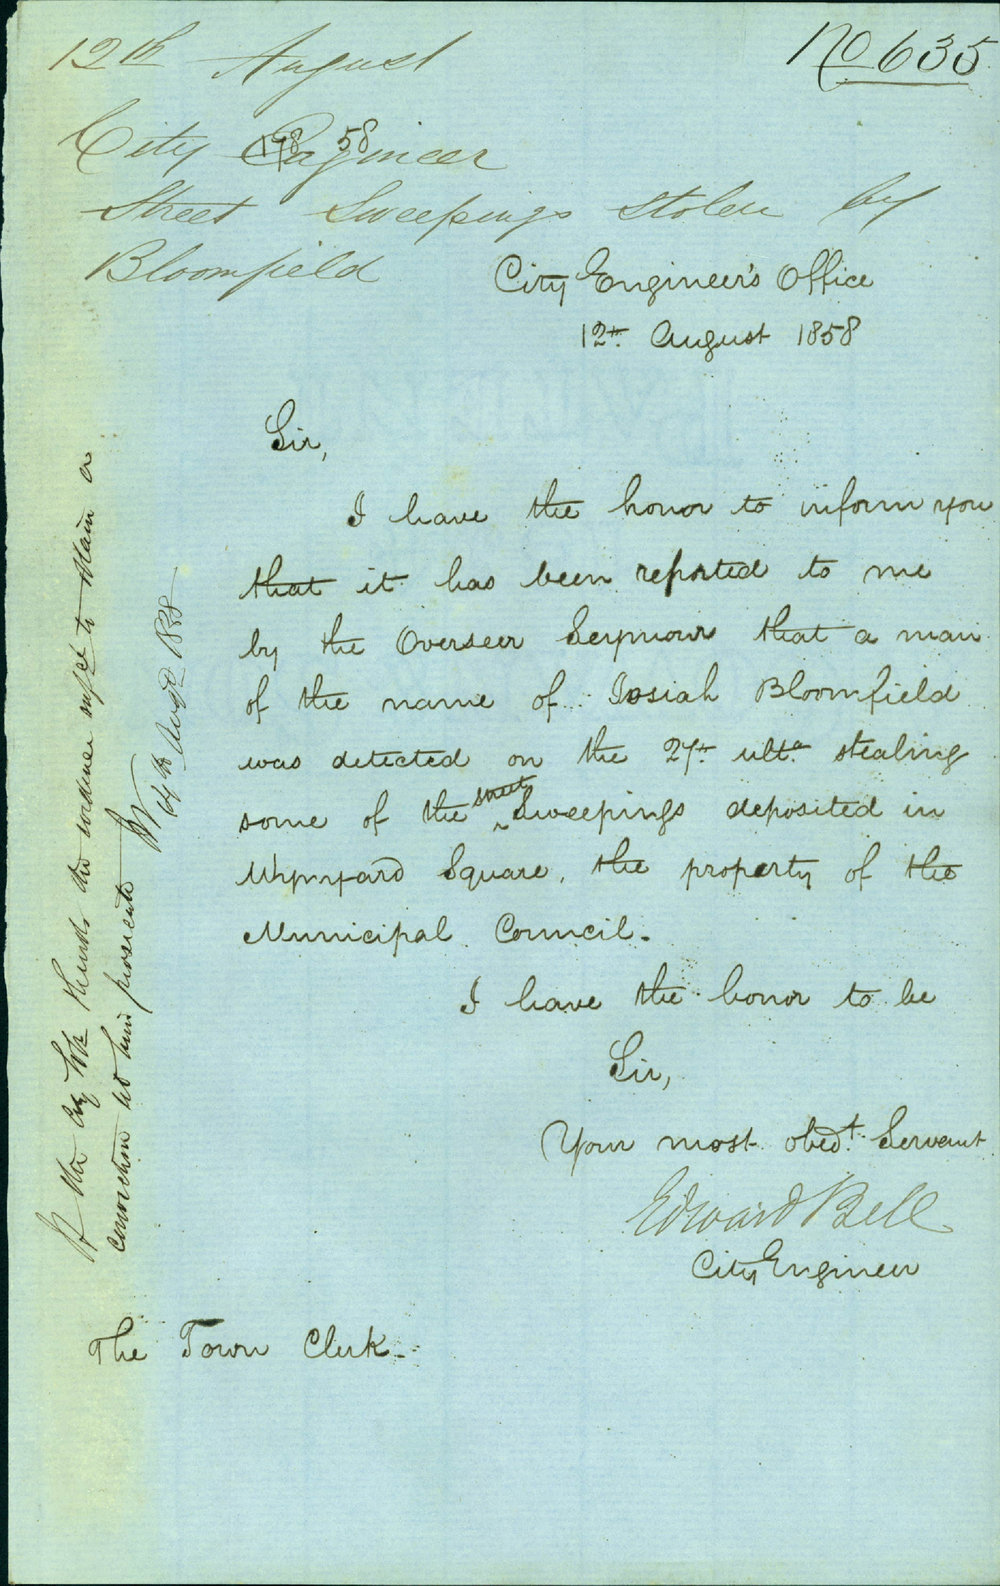 12th August
No 635
City Engineer
198 58
Street Sweepings stolen by
Bloomfield
City Engineer's Office
12th August 1858
Sir,
I have the honor to inform you
that it has been reported to me
by the Overseer Seymour that a man
of the name of Josiah Bloomfield
was detected on the 27th ulto stealing
some of the street Sweepings deposited in
Wynyard Square, the property of the
Municipal Council.
I have the honor to be
Sir,
Your most obedt Servant
Edward Bell
City Engineer
The Town Clerk.
the City thinks the evidence to obtain a
conviction let him prosecute
14th Augt 1858